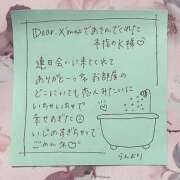 Dear. X'masであそんでくれた
本指のK様♡
連日会いに来てくれて
ありがと〜っ お部屋の
どこにいても恋人みたいに
いちゃいちゃで
幸せめだよ
いじめすぎちゃって
ごめんね♡
らんより